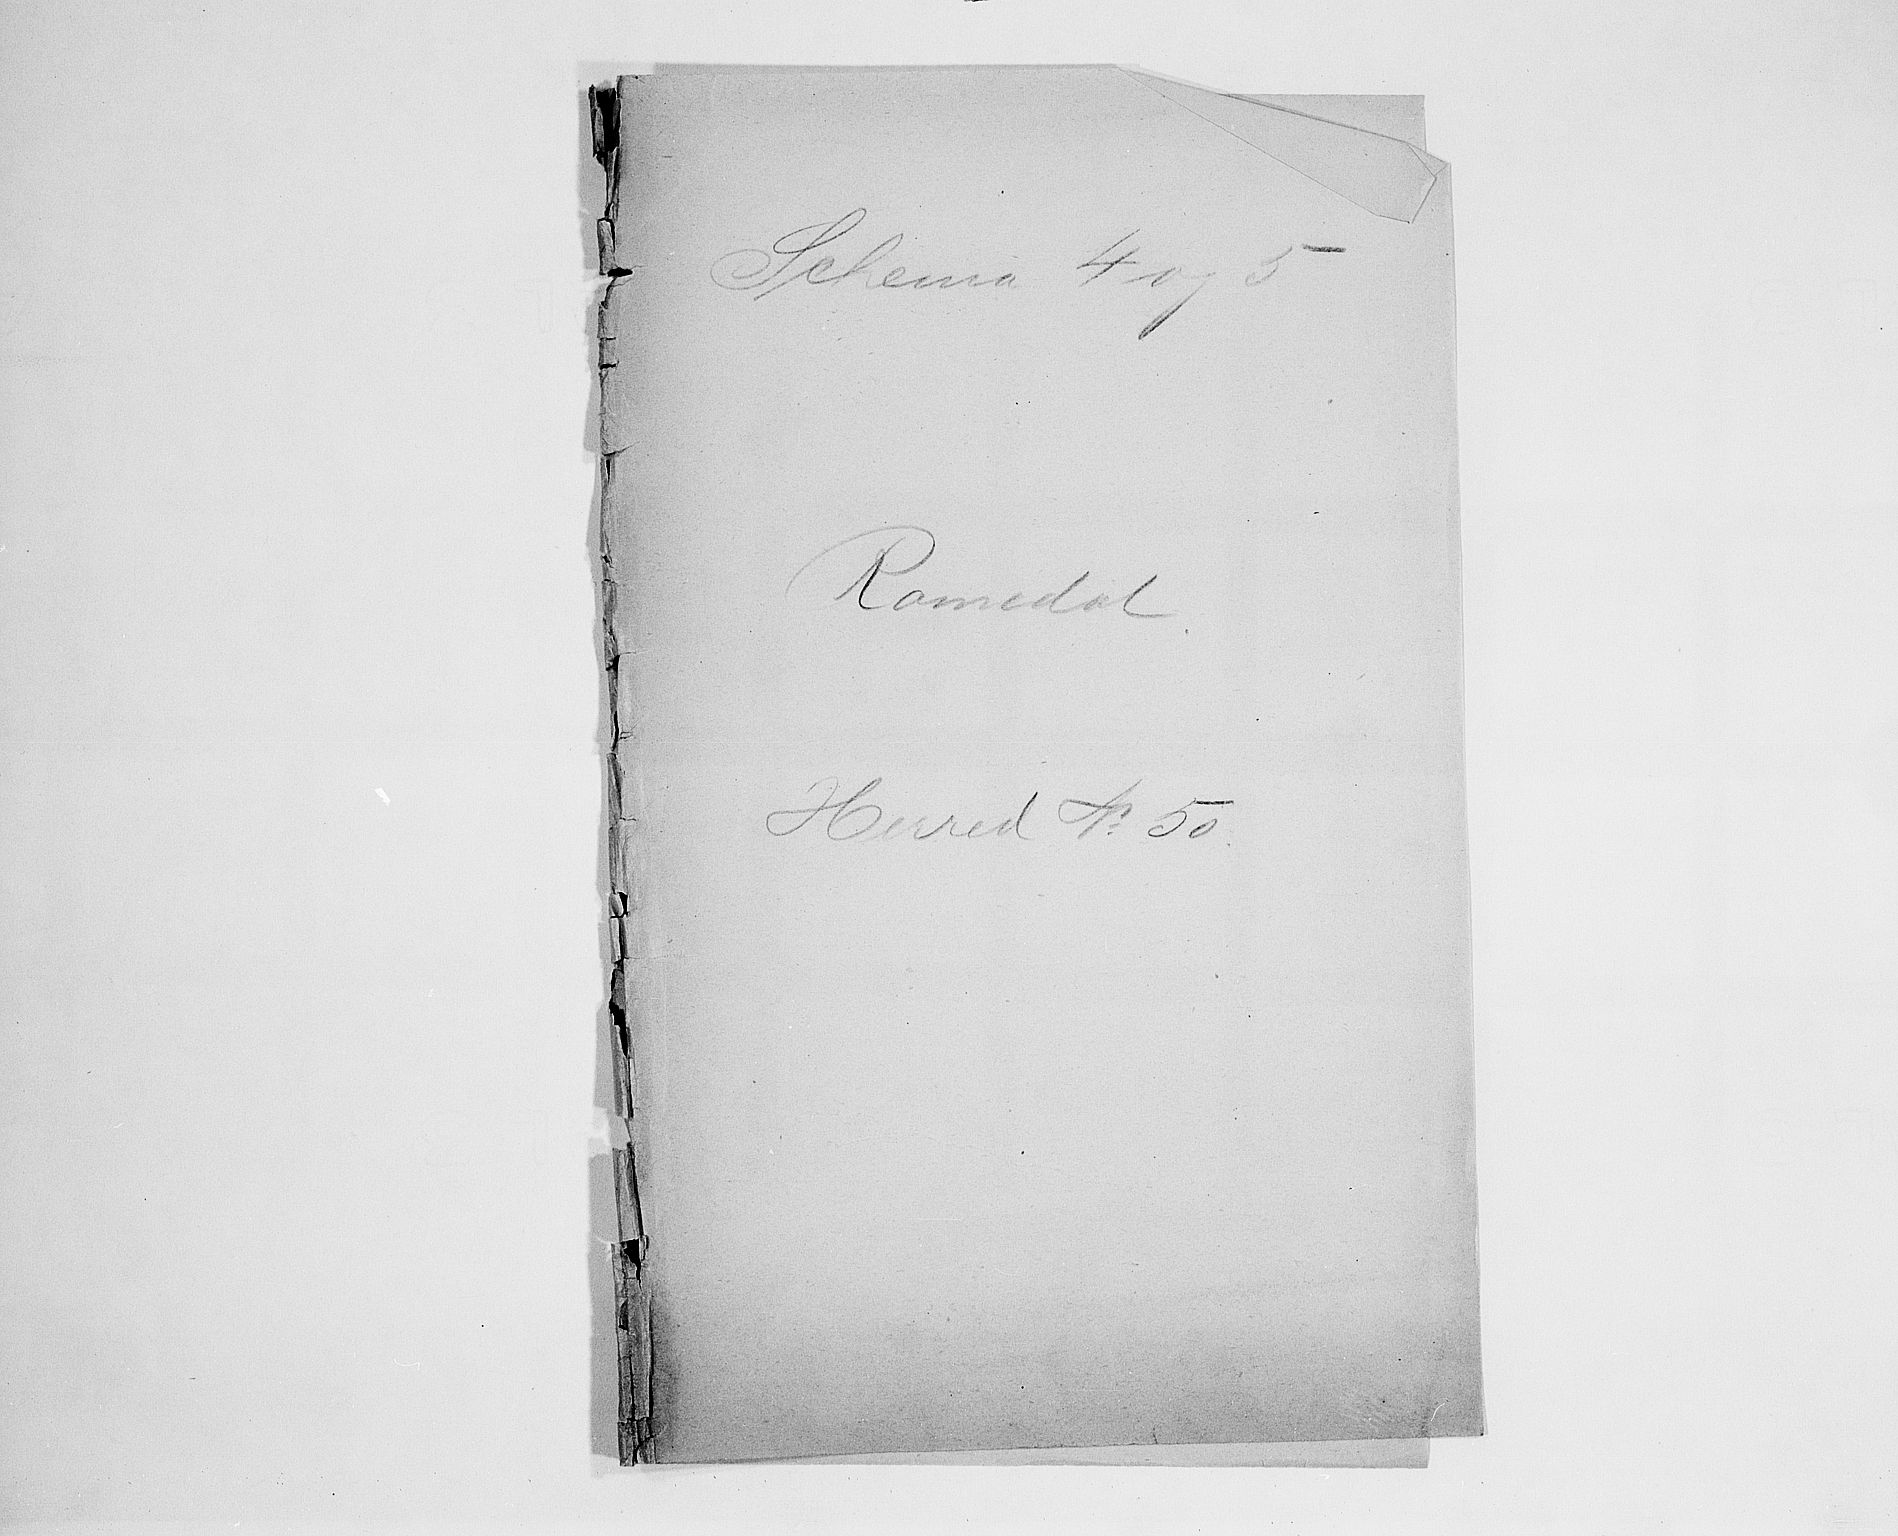 Schema 4 og 5
Romedal
Herred Nº 50.